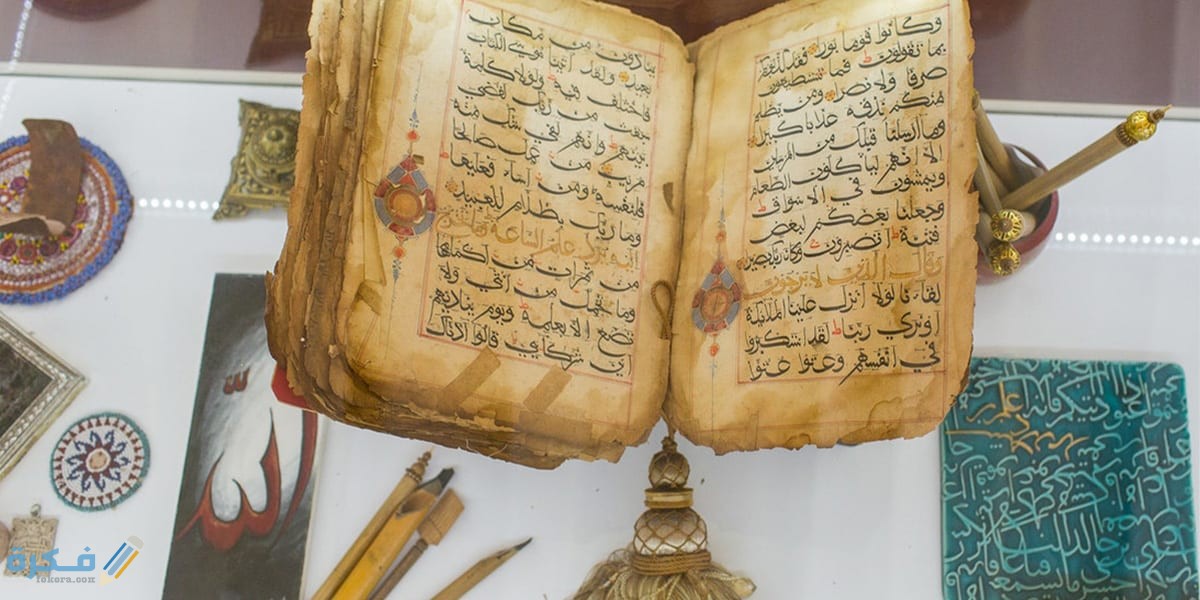 وكانوا قوما بورا فقد كذبوكم
بما تقولون فما تستطيعون
صرفا ولا نصرا ومن يظلم
منكم نذقه عذابا كبيرا
وما ارسلنا قبلك من المرسلين
الا انهم لياكلون الطعام
ويمشون في الاسواق
وجعلنا بعضكم لبعض
فتنة اتصبرون وكان ربك بصيرا
وقال الذين لا يرجون
لقاءنا لولا انزل علينا الملائكة
او نرى ربنا لقد استكبروا
في انفسهم وعتوا عتوا
ينادون من مكان
بعيد ولقد اتينا موسى الكتاب
فاختلف فيه ولولا كلمة
سبقت من ربك لقضي
بينهم وانهم لفي شك منه
مريب من عمل صالحا
فلنفسه ومن اساء فعليها
وما ربك بظلام للعبيد
اليه يرد علم الساعة وما تخرج
من ثمرات من اكمامها
وما تحمل من انثى ولا
تضع الا بعلمه ويوم يناديهم
اين شركائي قالوا اذناك
الله
فكرة
fokera.com